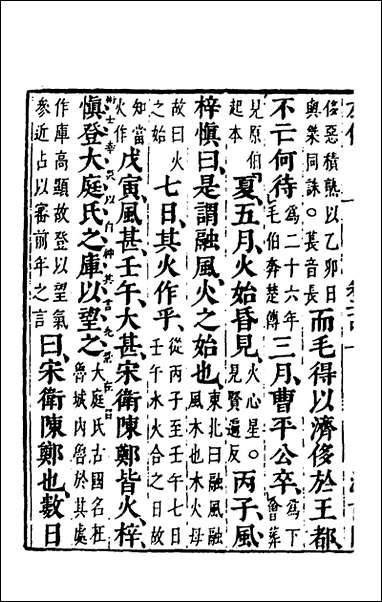 侈惡積熟以乙卯日與桀同誅。萇音長而毛得以濟侈於王都、
不亡何待爲二十六年毛伯奔楚傳三月、曹平公卒、爲下會葬
見原伯起本夏、五月、火始昏見、火心星。見賢遍反丙子、風、
梓慎曰、是謂融風、火之始也、東北曰融風風木也木火母
故曰火之始七日、其火作乎、從丙子至壬午七日壬午水火合之日故
知當火作戊寅、風甚、壬午、大甚、宋衛陳鄭皆火、梓
慎登大庭氏之庫以望之、大庭氏古國名在魯城內魯於其處
作庫高顯故登以望氣參近占以審前年之言曰、宋衛陳鄭也、數日